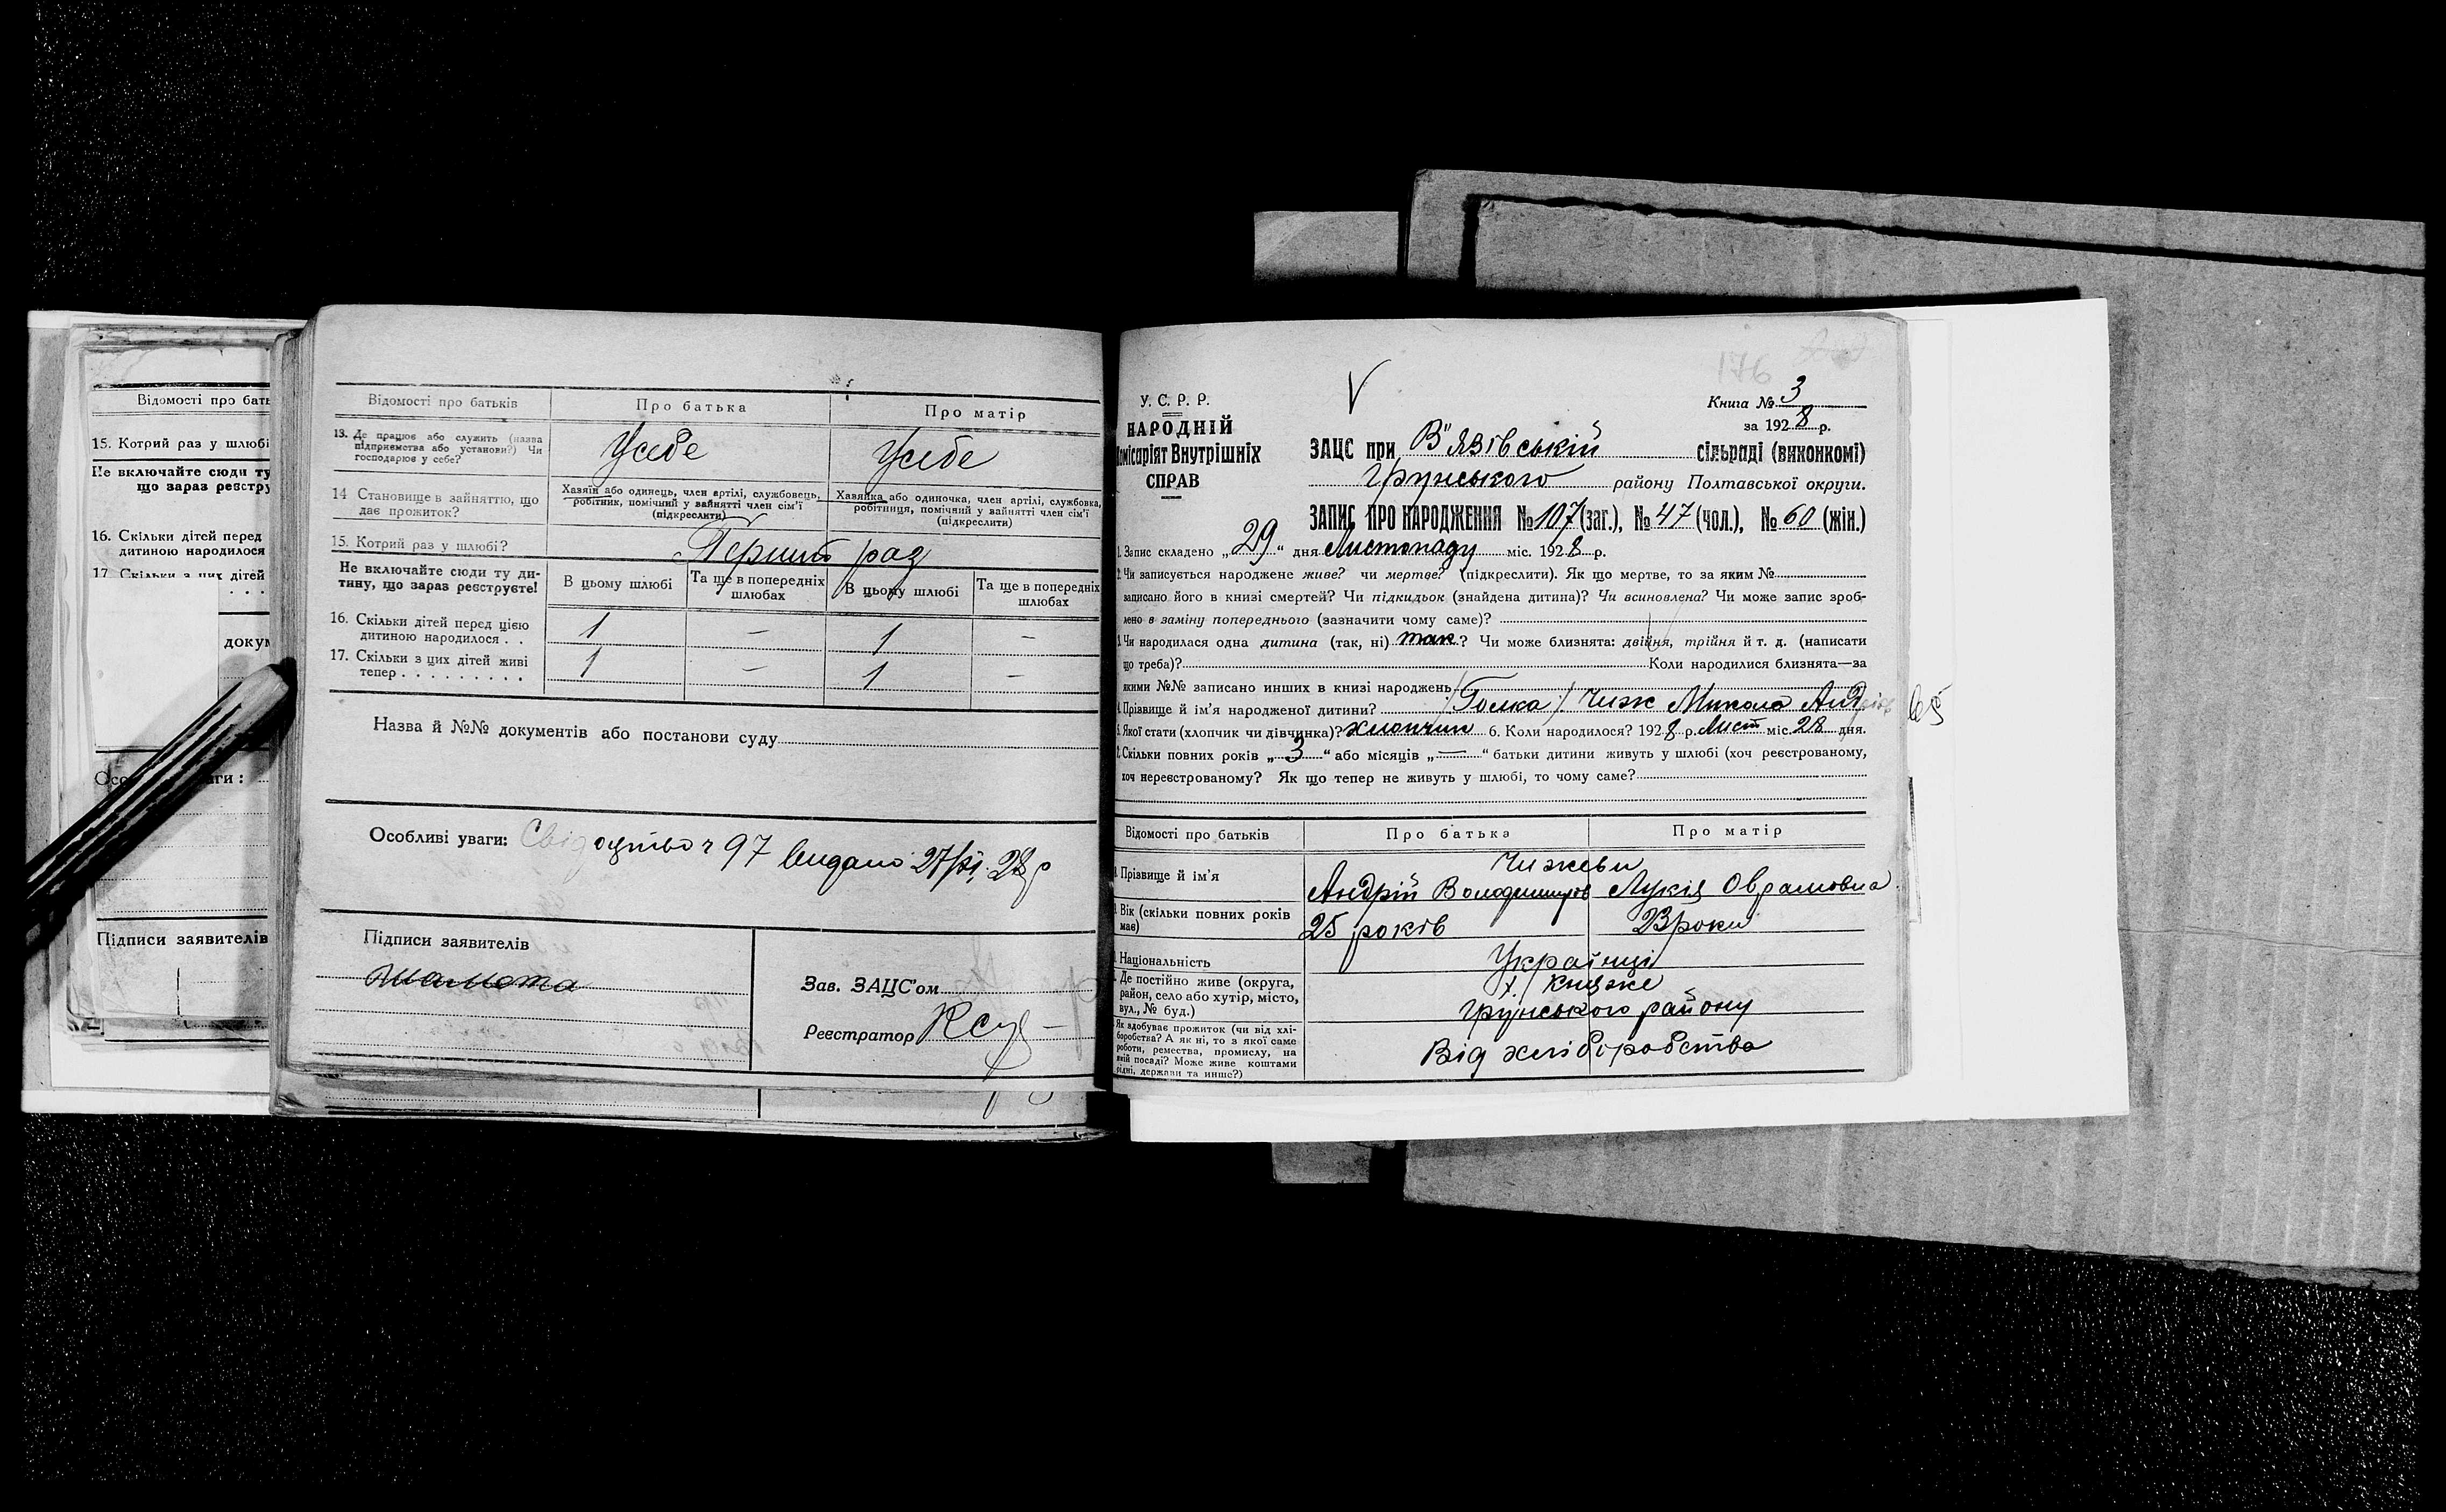 Відомості про бать
15. Котрий раз у шлюбі
Не включайте сюди ту
що зараз реєстру
16. Скільки дітей перед
дитиною народилося
17. Скільки з цих дітей
докум
уваги:
Підписи заявителів
Відомості про батьків Про батька Про матір
13. Де працює або служить (назва підприємства або установи?) Чи господарює у себе?
Усебе Усебе
14 Становище в зайняттю, що дає прожиток?
Хазяїн або одинець, член артілі, службовець, робітник, помічний у занятті член сім'ї (підкреслити)
Хазяйка або одиночка, член артілі, службовка, робітниця, помічний у занятті член сім'ї (підкреслити)
15. Котрий раз у шлюбі? Перший раз
Не включайте сюди ту дитину, що зараз реєструєте!
В цьому шлюбі Та ще в попередніх шлюбах В цьому шлюбі Та ще в попередніх шлюбах
16. Скільки дітей перед цією дитиною народилося . . 1 — 1 —
17. Скільки з цих дітей живі тепер . . . . . . . . . 1 — 1 —
Назва й №№ документів або постанови суду
Особливі уваги: Свідоцтво ч 97 видано 27/XI 28 р
Підписи заявителів
Зав. ЗАЦС'ом
Реєстратор
176
У. С. Р. Р.
НАРОДНІЙ
Комісаріят Внутрішніх
СПРАВ
V
Книга № 3
за 1928 р.
ЗАЦС при В"язівській сільраді (виконкомі)
Грунського району Полтавської округи.
ЗАПИС ПРО НАРОДЖЕННЯ № 107 (заг.), № 47 (чол.), № 60 (жін.)
1. Запис складено „29“ дня Листопаду міс. 1928 р.
2. Чи записується народжене живе? чи мертве? (підкреслити). Як що мертве, то за яким №
записано його в книзі смертей? Чи підкидьок (знайдена дитина)? Чи всиновлена? Чи може запис зроб-
лено в заміну попереднього (зазначити чому саме)?
3. Чи народилася одна дитина (так, ні) так? Чи може близнята: двійня, трійня й т. д. (написати
що треба)? Коли народилися близнята—за
якими №№ записано инших в книзі народжень
4. Прізвище й ім'я народженої дитини? /Голка/ Чиж Микола Андріїв
5. Якої стати (хлопчик чи дівчинка)? хлопчик 6. Коли народилося? 1928 р. Лист міс. 28 дня.
7. Скільки повних років „3“ або місяців „—“ батьки дитини живуть у шлюбі (хоч реєстрованому,
хоч нереєстрованому? Як що тепер не живуть у шлюбі, то чому саме?
Відомості про батьків Про батька Про матір
Чижеви
8. Прізвище й ім'я Андрій Володимиров Лукія Оврамовна
9. Вік (скільки повних років має) 25 років 23 роки
Національність Українці
Де постійно живе (округа, район, село або хутір, місто, вул., № буд.)
х. Княже
Грунського району
Як здобуває прожиток (чи від хлі-
боробства? А як ні, то з якої саме
роботи, ремества, промислу, на
якій посаді? Може живе коштами
рідні, держави та инше?)
Від хліборобства